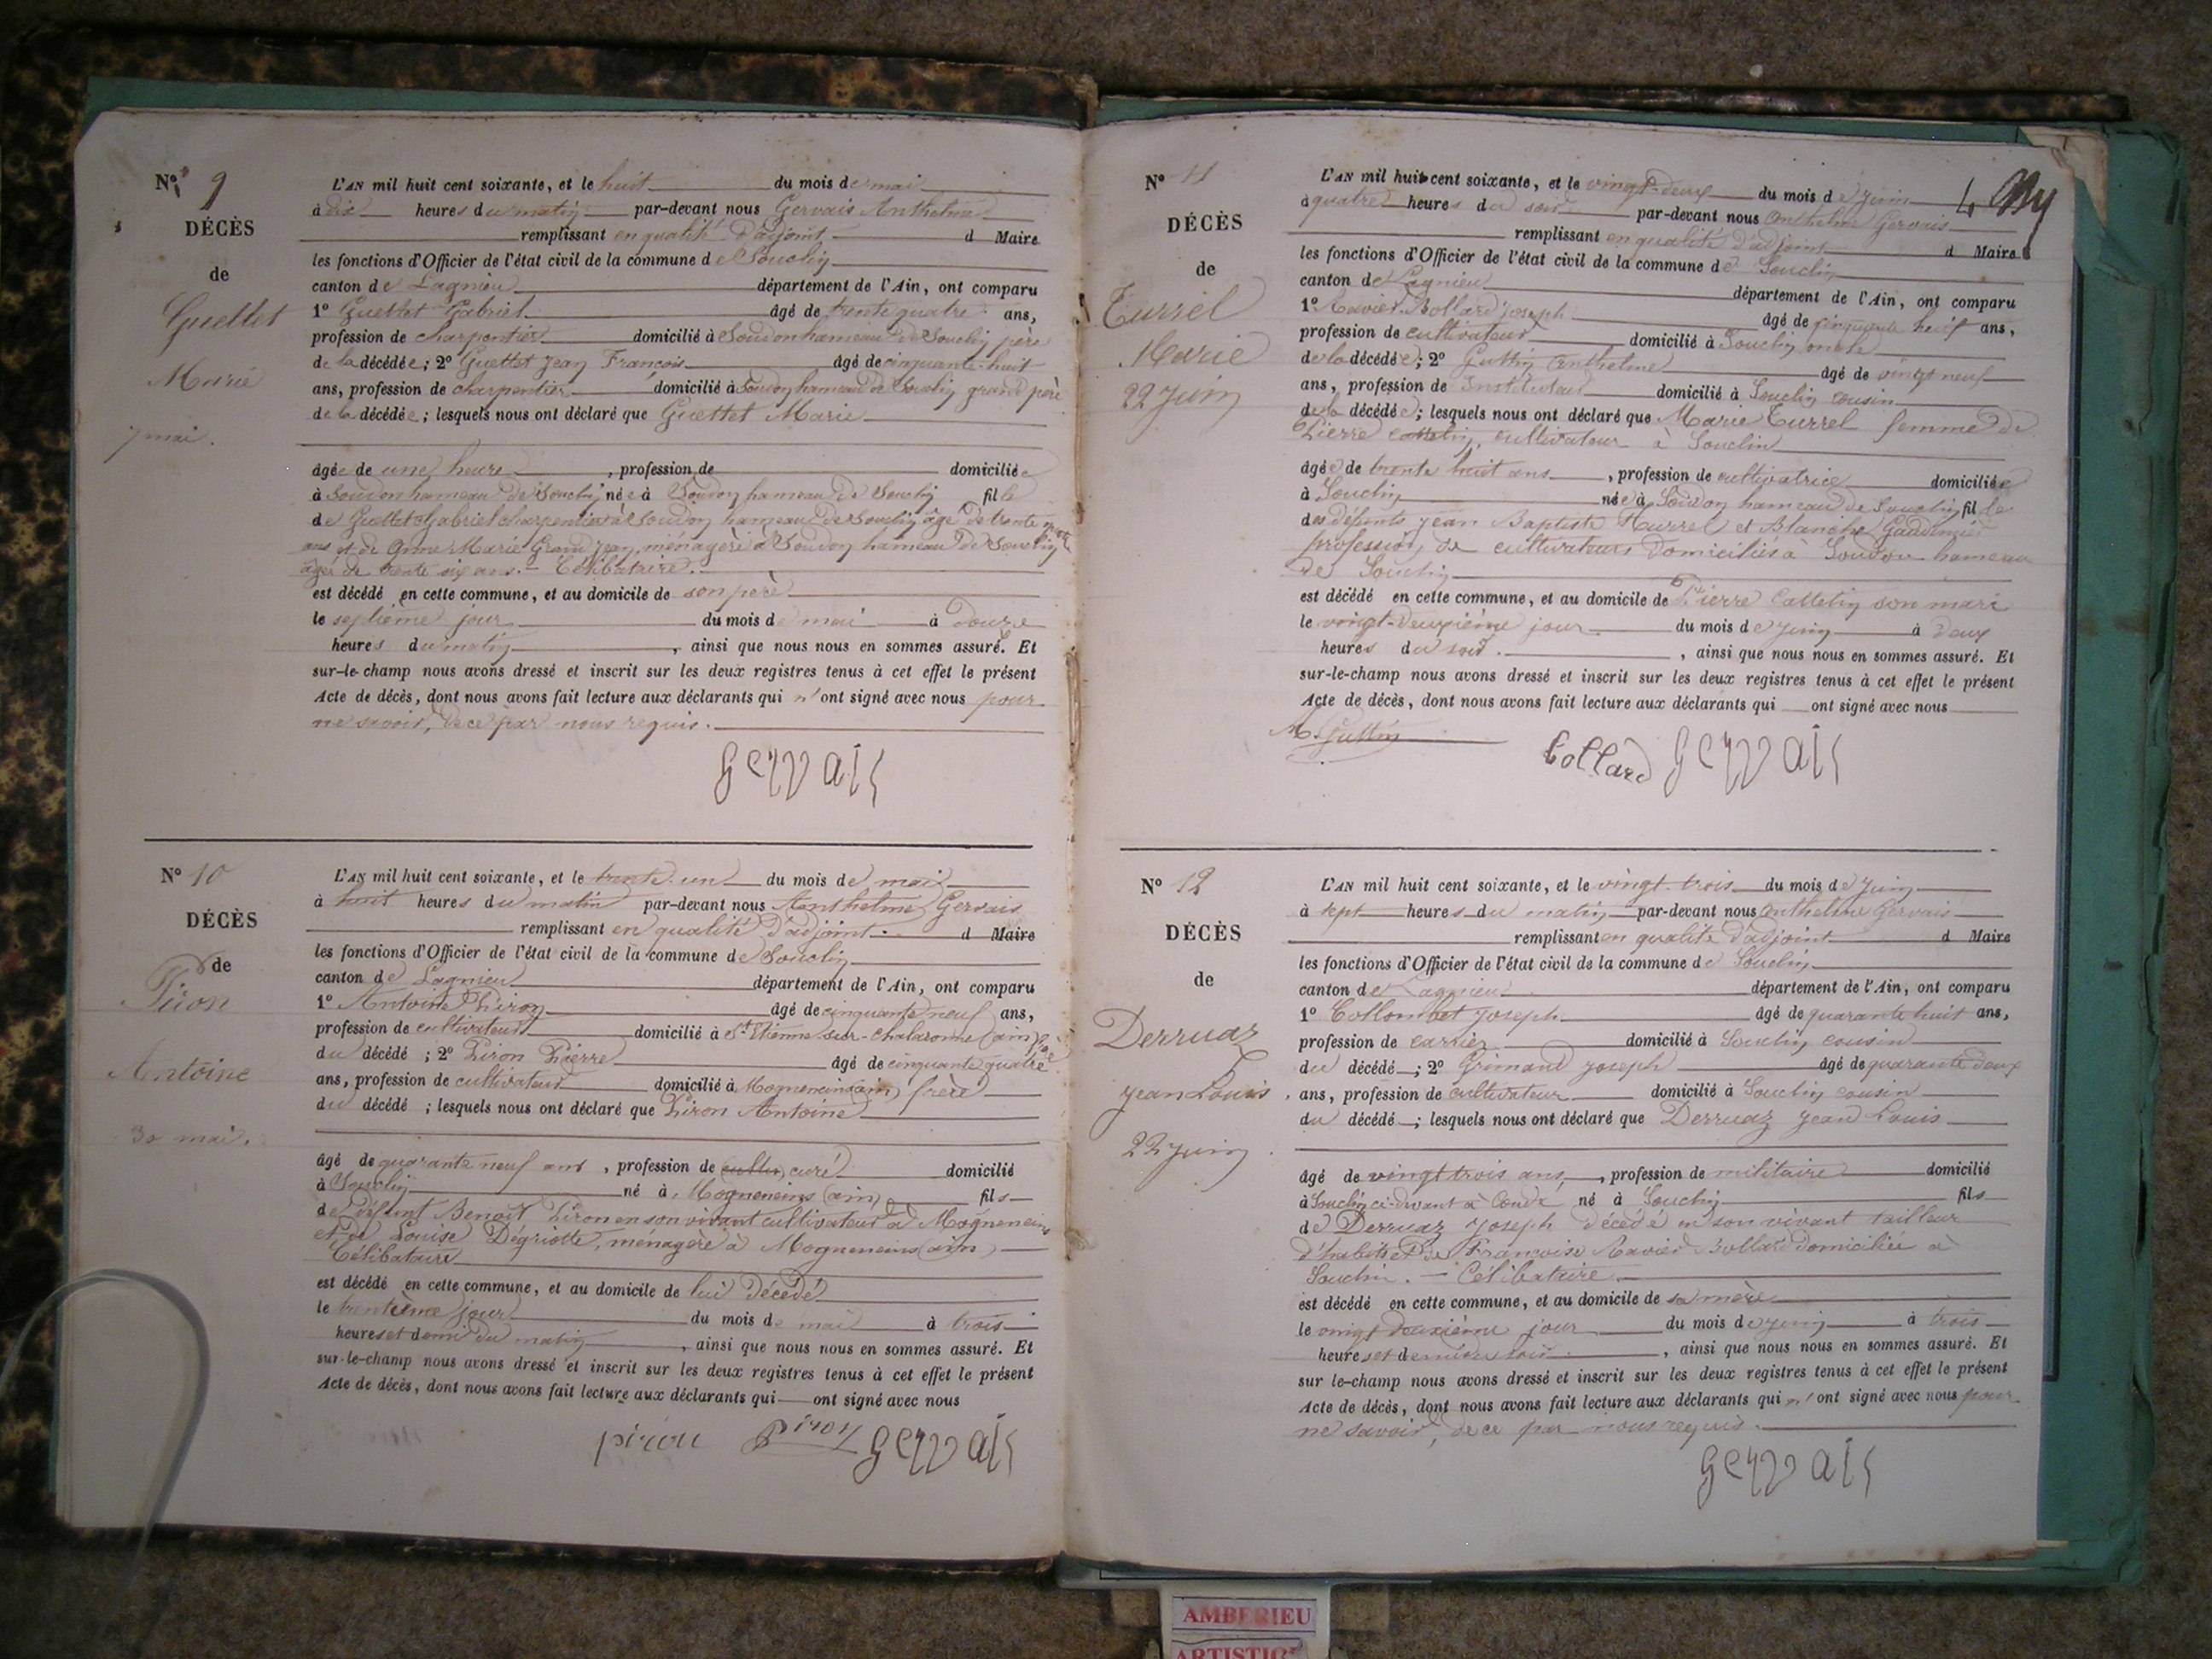 N° 9
DÉCÈS
de
Guettet
Marie
7 mai.
L'AN mil huit cent soixante, et le huit du mois de mai
à dix heures du matin par-devant nous Gervais Anthelme
remplissant en qualité d'adjoint d Maire
les fonctions d'Officier de l'état civil de la commune de Souclin
canton de Lagnieu département de l'Ain, ont comparu
1° Guettet Gabriel âgé de trente quatre ans,
profession de charpentier domicilié à Soudon hameau de Souclin père
de la décédée; 2° Guettet Jean François âgé de cinquante-huit
ans, profession de charpentier domicilié à Soudon hameau de Souclin grand père
de la décédée; lesquels nous ont déclaré que Guettet Marie
âgée de une heure, profession de domiciliée
à Soudon hameau de Souclin née à Soudon hameau de Souclin fille
de Guettet Gabriel charpentier à Soudon hameau de Souclin âgé de trente quatre
ans et de Anne Marie Grand Jean, ménagère à Soudon hameau de Souclin
âgée de trente six ans. - Célibataire.
est décédé en cette commune, et au domicile de son père
le septième jour du mois de mai à douze
heures du matin, ainsi que nous nous en sommes assuré. Et
sur-le-champ nous avons dressé et inscrit sur les deux registres tenus à cet effet le présent
Acte de décès, dont nous avons fait lecture aux déclarants qui n'ont signé avec nous pour
ne savoir, de ce par nous requis.
Gervais
N° 10
DÉCÈS
de
Piron
Antoine
30 mai.
L'AN mil huit cent soixante, et le trente-un du mois de mai
à huit heures du matin par-devant nous Anthelme Gervais
remplissant en qualité d'adjoint. d Maire
les fonctions d'Officier de l'état civil de la commune de Souclin
canton de Lagnieu département de l'Ain, ont comparu
1° Antoine Piron âgé de cinquante neuf ans,
profession de cultivateur domicilié à St Etienne-sur-chalaronne (ain) frère
du décédé ; 2° Piron Pierre âgé de cinquante quatre
ans, profession de cultivateur domicilié à Mogneneins (ain) frère
du décédé ; lesquels nous ont déclaré que Piron Antoine
âgé de quarante neuf ans, profession de curé domicilié
à Souclin né à Mogneneins (ain) fils
de défunt Benoit Piron en son vivant cultivateur à Mogneneins
et de Louise Dégriotte, ménagère à Mogneneins (ain)
Célibataire
est décédé en cette commune, et au domicile de lui décédé
le trentième jour du mois de mai à trois
heures et demi du matin, ainsi que nous nous en sommes assuré. Et
sur-le-champ nous avons dressé et inscrit sur les deux registres tenus à cet effet le présent
Acte de décès, dont nous avons fait lecture aux déclarants qui ont signé avec nous
piron Piron Gervais
N° 11
DÉCÈS
de
Turrel
Marie
22 Juin
4
L'AN mil huit cent soixante, et le vingt-deux du mois de Juin
à quatre heures du soir par-devant nous Anthelme Gervais
remplissant en qualité d'adjoint d Maire
les fonctions d'Officier de l'état civil de la commune de Souclin
canton de Lagnieu département de l'Ain, ont comparu
1° Ravier-Bollard Joseph âgé de cinquante neuf ans,
profession de cultivateur domicilié à Souclin oncle
de la décédée; 2° Guttin Anthelme âgé de vingt neuf
ans, profession de Instituteur domicilié à Souclin cousin
de la décédée; lesquels nous ont déclaré que Marie Turrel femme de
Pierre Cattelin, cultivateur à Souclin
âgée de trente huit ans, profession de cultivatrice domiciliée
à Souclin née à Soudon hameau de Souclin fille
des défunts Jean Baptiste Turrel et Blanche
profession de cultivateurs domiciliés à Soudon hameau
de Souclin
est décédé en cette commune, et au domicile de Pierre Cattelin son mari
le vingt-deuxième jour du mois de Juin à deux
heures du soir., ainsi que nous nous en sommes assuré. Et
sur-le-champ nous avons dressé et inscrit sur les deux registres tenus à cet effet le présent
Acte de décès, dont nous avons fait lecture aux déclarants qui ont signé avec nous
Guttin
bollard Gervais
N° 12
DÉCÈS
de
Derruaz
Jean Louis
22 Juin
L'AN mil huit cent soixante, et le vingt-trois du mois de Juin
à sept heures du matin par-devant nous Anthelme Gervais
remplissant en qualité d'adjoint d Maire
les fonctions d'Officier de l'état civil de la commune de Souclin
canton de Lagnieu département de l'Ain, ont comparu
1° Collombet Joseph âgé de quarante huit ans,
profession de carrier domicilié à Souclin cousin
du décédé ; 2° Grimand Joseph âgé de quarante deux
ans, profession de cultivateur domicilié à Souclin cousin
du décédé ; lesquels nous ont déclaré que Derruaz Jean Louis
âgé de vingt trois ans, profession de militaire domicilié
à Souclin ci-devant à Condé né à Souclin fils
de Derruaz Joseph décédé en son vivant tailleur
d'habits et de Françoise Ravier Bollard domiciliée à
Souclin. - Célibataire.
est décédé en cette commune, et au domicile de sa mère
le vingt deuxième jour du mois de Juin à trois
heures et demie du soir, ainsi que nous nous en sommes assuré. Et
sur le-champ nous avons dressé et inscrit sur les deux registres tenus à cet effet le présent
Acte de décès, dont nous avons fait lecture aux déclarants qui n'ont signé avec nous pour
ne savoir, de ce par nous requis.
Gervais
AMBERIEU
ARTISTIQ